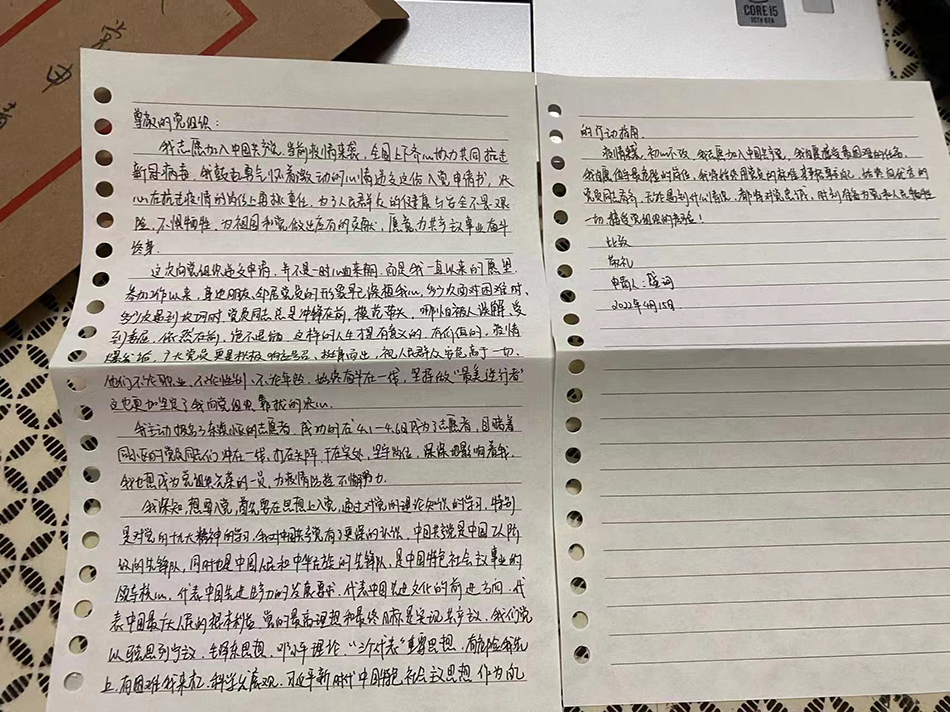 CORE i5
10TH GEN
尊敬的党组织：
我志愿加入中国共产党。当前疫情来袭，全国上下齐心协力共同抗击
新冠病毒，我鼓起勇气怀着激动的心情递交这份入党申请书，决
心在抗击疫情的岗位上勇敢重任，为了人民群众的健康与安全不畏艰
险、不惧牺牲，为祖国和党做出应有的贡献，愿意为共产主义事业奋斗
终身。
这次向党组织递交申请，并不是一时心血来潮，而是我一直以来的愿望。
参加工作以来，身边朋友、邻居党员的形象早已深植我心，多少次面对困难时、
多少次遇到坎坷时，党员同志总是冲锋在前，模范带头，哪怕被人误解、受
到责怪，依然在前，绝不退缩，这样的人生才是有意义的、有价值的，疫情
爆发后，广大党员更是积极响应号召、挺身而出，视人民群众安危高于一切，
他们不论职业、不论性别、不论年龄，始终奋斗在一线，坚持做“最美逆行者”
这也更加坚定了我向党组织靠拢的决心。
我主动报名了的志愿者，成功的在4.1-4.6日成为了志愿者，目睹着
同小区的党员同志们冲在一线、打在头阵、干在实处、坚守岗位，深深地影响着我，
我也想成为党组织光荣的一员，为疫情防控不懈努力。
我深知，想要入党，首先要在思想上入党，通过对党的理论知识的学习，特别
是对党的十九大精神的学习，我对中国共产党有了更深的认识，中国共产党是中国工人阶
级的先锋队，同时也是中国人民和中华民族的先锋队，是中国特色社会主义事业的
领导核心，代表中国先进生产力的发展要求，代表中国先进文化的前进方向，代
表中国最广大人民的根本利益，党的最高理想和最终目标是实现共产主义。我们党
以马克思列宁主义、毛泽东思想、邓小平理论、“三个代表”重要思想，有危险我先
上，有困难我来扛、科学发展观、习近平新时代中国特色社会主义思想作为的
的行动指南。
疫情，初心不改，我志愿加入中国共产党，我自愿接受最困难的任务，
我自愿值守最危险的岗位，我将按照党员的标准来积极，始终向优秀的
党员同志看齐，无论遇到什么情况，都将对党忠诚，时刻准备为党和人民牺牲
一切，接受党组织的考验！
此致
敬礼
申请人：
2022年4月15日